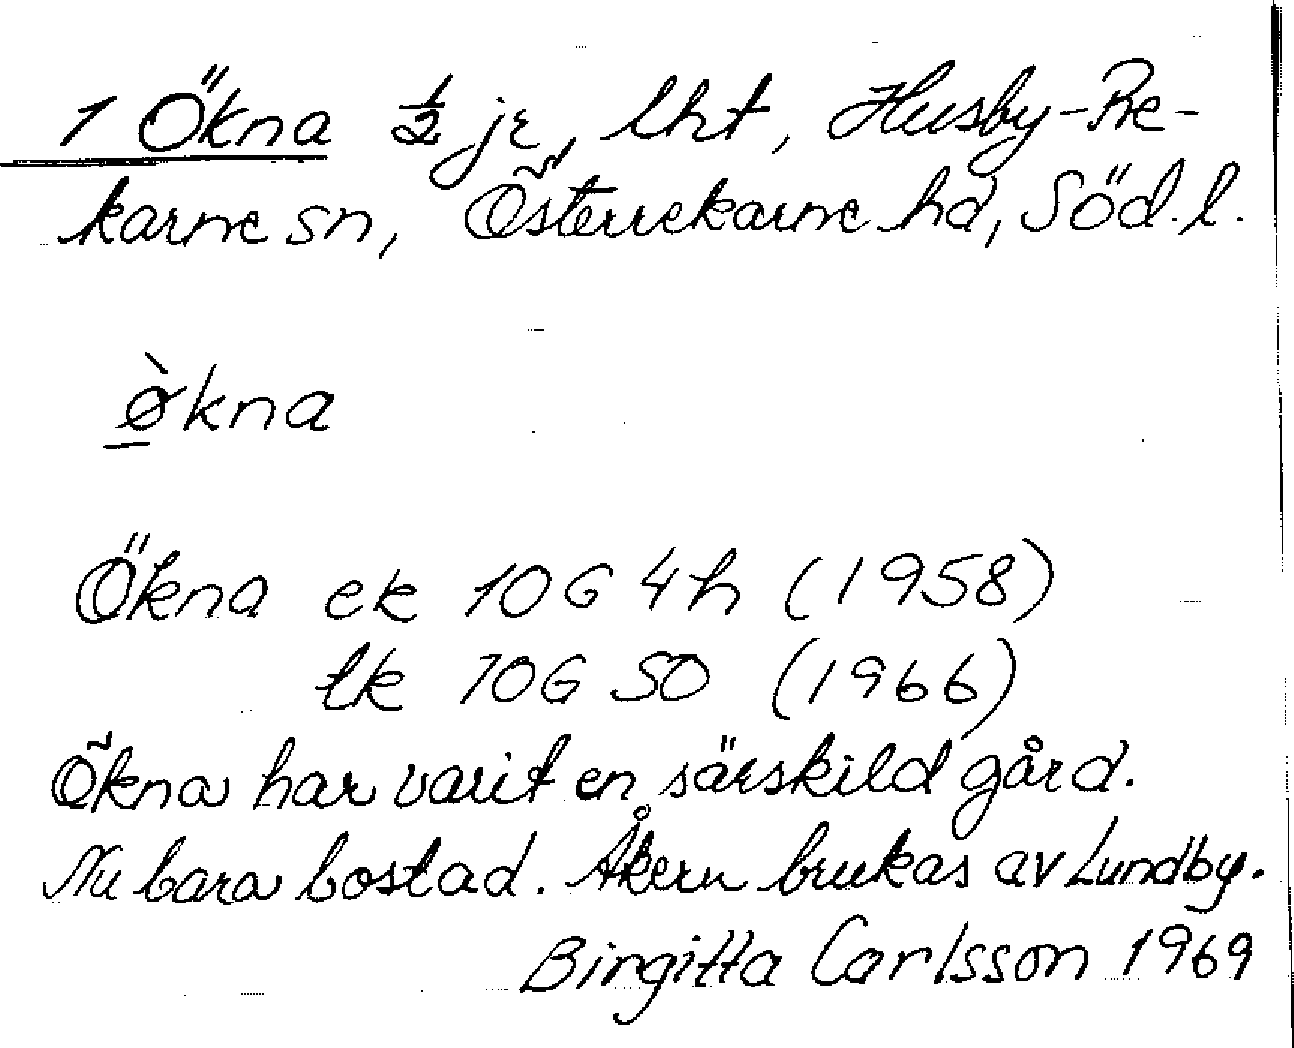 1 Ökna ½ je, lht, Husby-Re-
karne sn, Österrekarne hd, Söd. l.
ø̀kna
Ökna ek 10G 4h (1958)
tk 10G SO (1966)
Ökna har varit en särskild gård.
Nu bara bostad. Åkern brukas av Lundby.
Birgitta Carlsson 1969